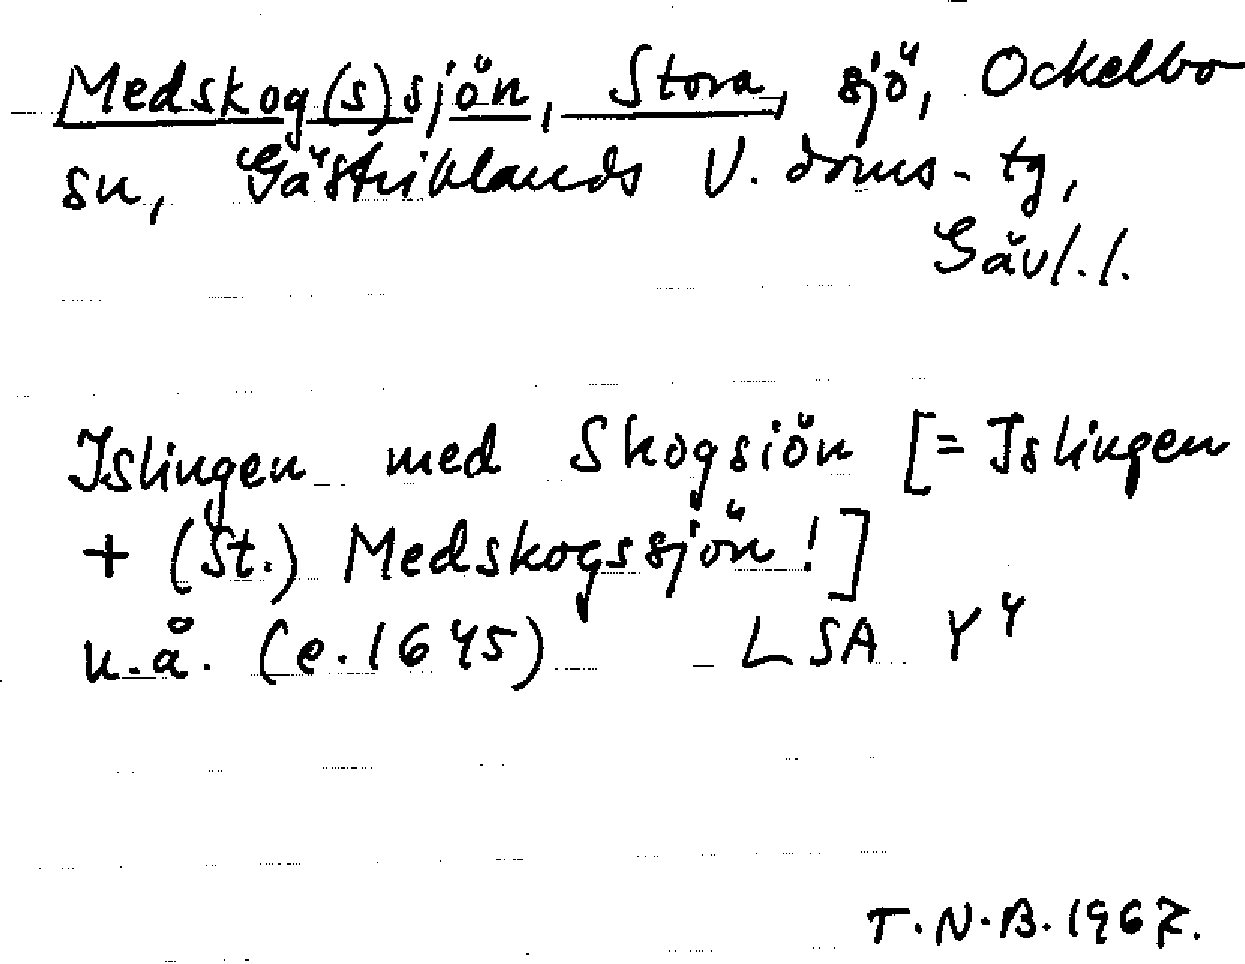 Medskog(s)sjön, Stora, sjö, Ockelbo
sn, Gästriklands V. doms-tg,
Gävl.l.
Islingen med Skogsiön [= Islingen
+ (St.) Medskogssjön!]
u.å. (e.1645) LSA Y4
T.N.B. 1967.